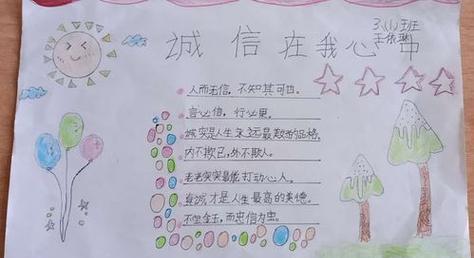 诚信在我心中
3.(1)班
王依琳
人而无信，不知其可也。
言必信，行必果。
诚实是人生永远最美好的品格。
内不欺己，外不欺人。
老老实实最能打动人心。
真诚才是人生最高的美德。
不宝金玉，而忠信为宝。